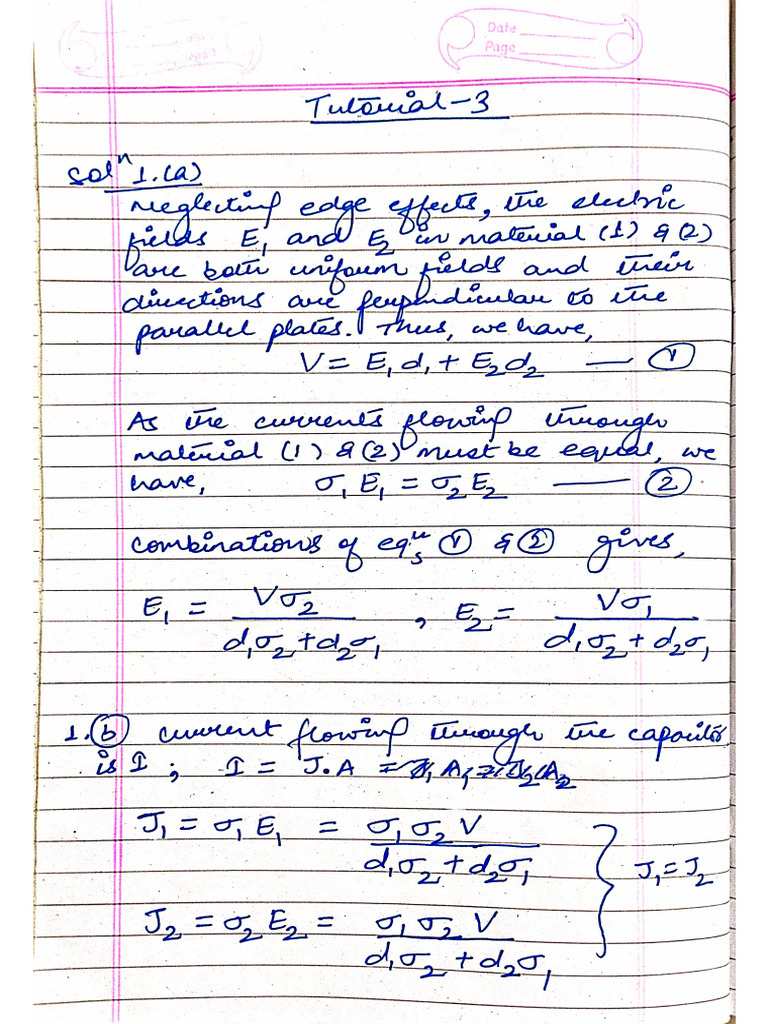 Date
Page
Tutorial-3
Solⁿ 1.(a)
Neglecting edge effects, the electric
fields E₁ and E₂ in material (1) & (2)
are both uniform fields and their
directions are perpendicular to the
parallel plates. Thus, we have,
V = E₁d₁ + E₂d₂ — ①
As the currents flowing through
material (1) & (2) must be equal, we
have, σ₁E₁ = σ₂E₂ — ②
Combinations of eqⁿₛ ① & ② gives,
E₁ = Vσ₂ / (d₁σ₂ + d₂σ₁) , E₂ = Vσ₁ / (d₁σ₂ + d₂σ₁)
1.ⓑ Current flowing through the capacitor
is I ; I = J.A
J₁ = σ₁E₁ = σ₁σ₂V / (d₁σ₂ + d₂σ₁)
J₁ = J₂
J₂ = σ₂E₂ = σ₁σ₂V / (d₁σ₂ + d₂σ₁)